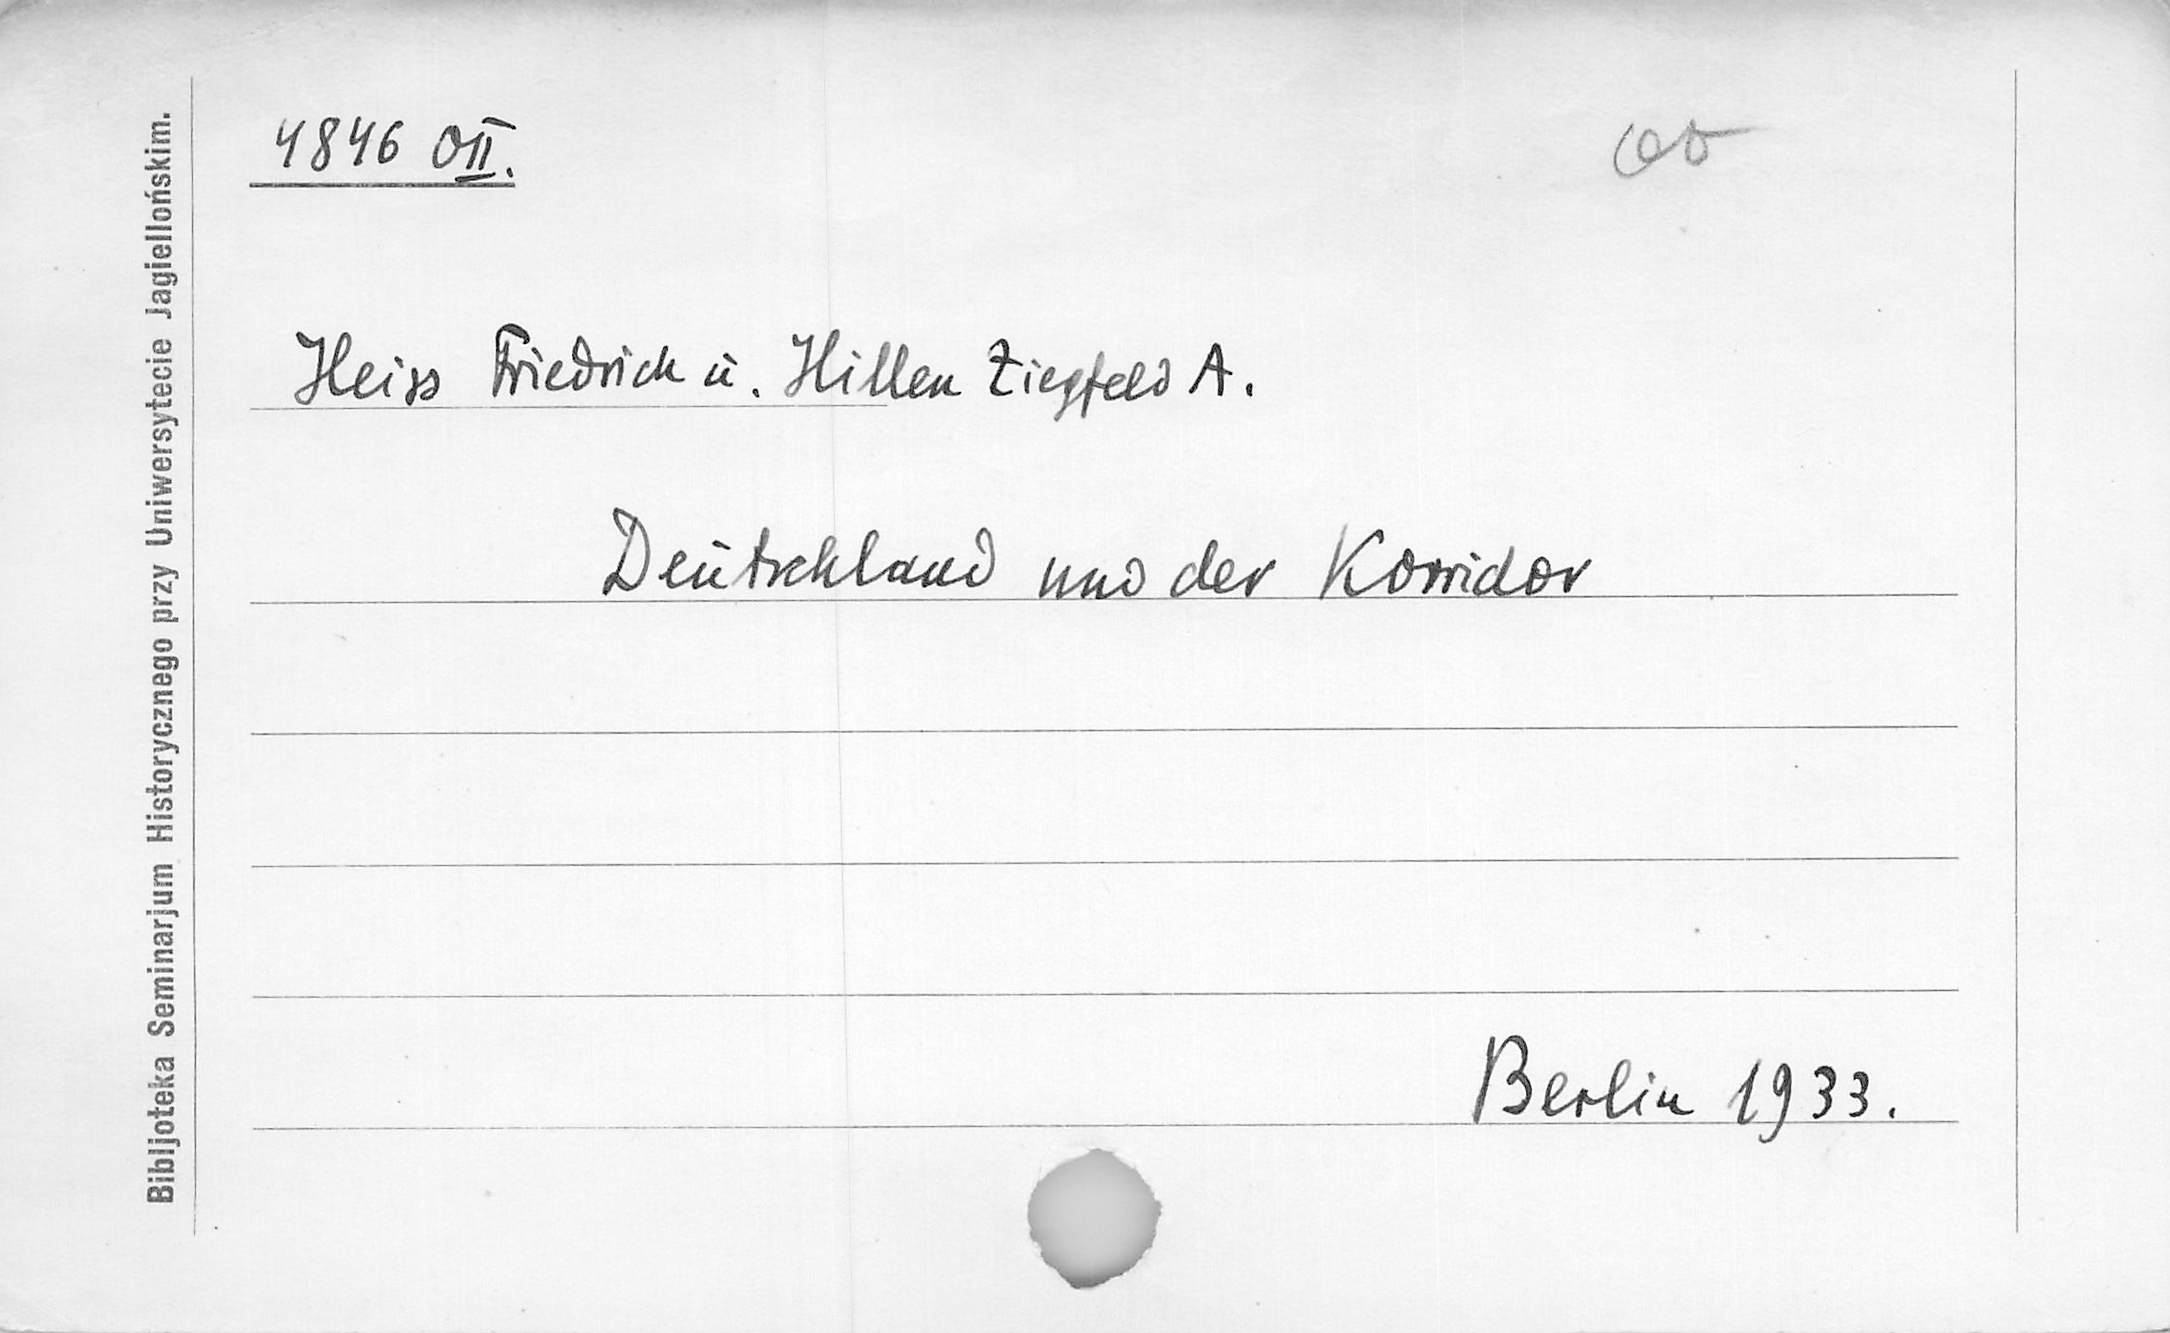 4846 OII.
Heiss Friedrich u. Hillen Ziegfeld A.
Deutschland und der Korridor
Berlin 1933.
Bibljoteka Seminarjum Historycznego przy Uniwersytecie Jagiellońskim.